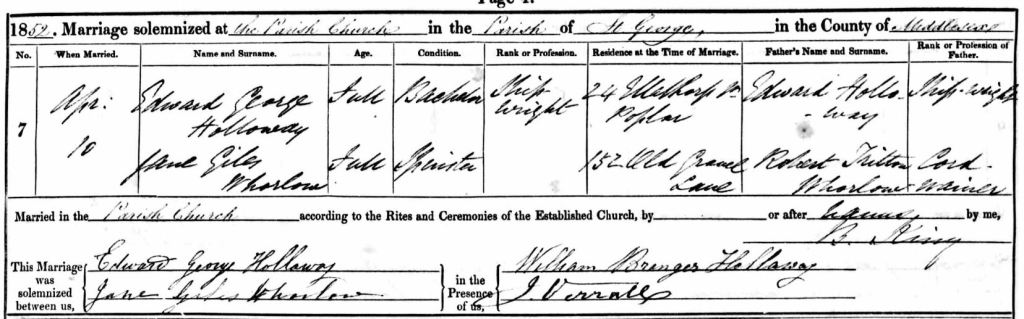 Page 4.
1852. Marriage solemnized at the Parish Church in the Parish of St George, in the County of Middlesex
No. When Married. Name and Surname. Age. Condition. Rank or Profession. Residence at the Time of Marriage. Father's Name and Surname. Rank or Profession of Father.
7 Apr: 10
Edward George Holloway Full Bachelor Ship wright 24 Ellathorp Poplar Edward Hollo-way Ship-wright
Jane Giles Whorlow Full Spinster 152 Old Gravel Lane Robert Tritton Whorlow Cord-wainer
Married in the Parish Church according to the Rites and Ceremonies of the Established Church, by or after Banns, by me,
B. King
This Marriage was solemnized between us, Edward George Holloway
Jane Giles Whorlow
in the Presence of us, William Branger Holloway
J Verrall